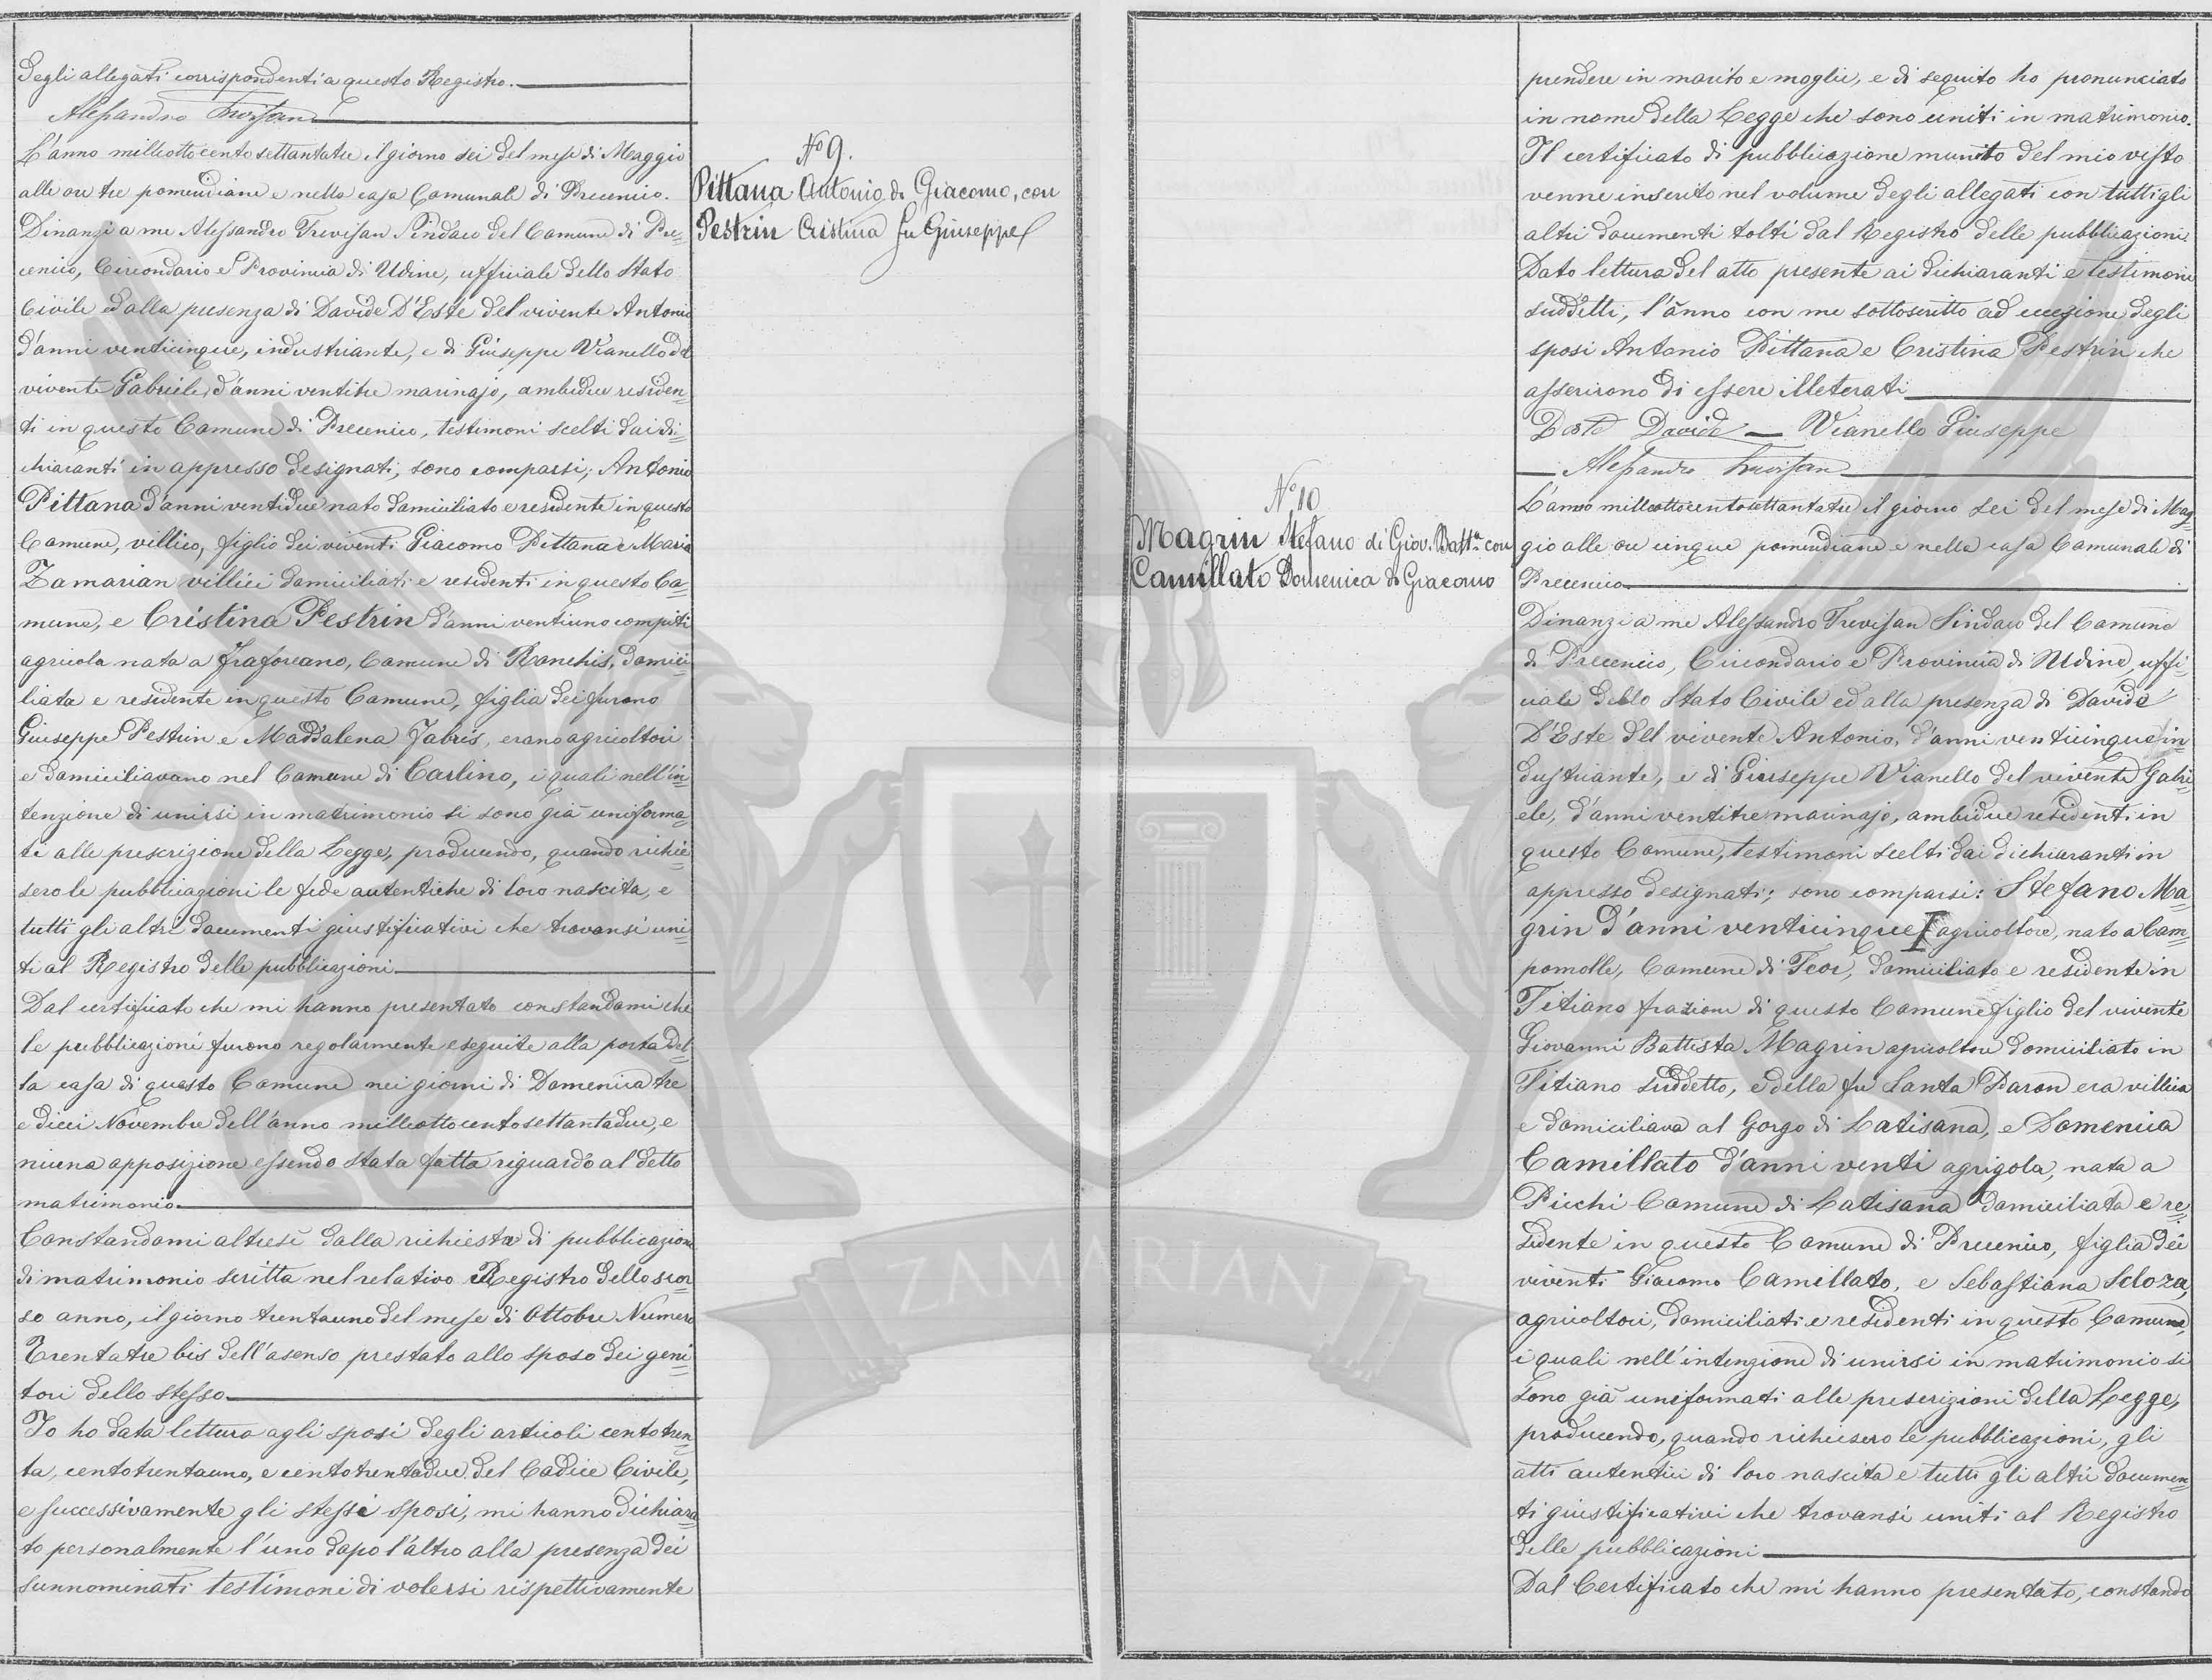 degli allegati corrispondenti a questo Registro.
Alessandro Trevisan
L'anno milleottocento settantatre il giorno sei del mese di Maggio
alle ore tre pomeridiane e nella casa Comunale di Precenico.
Dinanzi a me Alessandro Trevisan Sindaco del Comune di Pre=
cenico, Circondario e Provincia di Udine, ufficiale dello Stato
Civile ed alla presenza di Davide D'Este del vivente Antonio
d'anni venticinque, industriante, e di Giuseppe Vianello del
vivente Gabriele, d'anni ventitre marinajo, ambedue residen=
ti in questo Comune di Precenico, testimoni scelti dai di=
chiaranti in appresso designati, sono comparsi; Antonio
Pittana d'anni ventidue nato domiciliato e residente in questo
Comune, villico, figlio dei viventi Giacomo Pittana e Maria
Zamarian villici domiciliati e residenti in questo Co=
mune, e Cristina Pestrin d'anni ventiuno compiti
agricola nata a Fraforeano, Comune di Ronchis, domici=
liata e residente in questo Comune, figlia dei furono
Giuseppe Pestrin e Maddalena Fabris, erano agricoltori
e domiciliavano nel Comune di Carlino, i quali nell'in=
tenzione di unirsi in matrimonio si sono già uniforma=
ti alle prescrizione della Legge, producendo, quando richie=
sero le pubblicazioni le fede autentiche di loro nascita, e
tutti gli altri documenti giustificativi che trovansi uni=
ti al Registro delle pubblicazioni
Dal certificato che mi hanno presentato constandomi che
le pubblicazioni furono regolarmente eseguite alla porta del=
la casa di questo Comune nei giorni di Domenica tre
e dieci Novembre dell'anno milleottocentosettantadue, e
niuna apposizione essendo stata fatta riguardo al detto
matrimonio
Constandomi altresì dalla richiesta di pubblicazione
di matrimonio scritta nel relativo Registro dello scor
so anno, il giorno trentauno del mese di Ottobre Numero
Trentatre bis dell'asenso prestato allo sposo dei geni=
tori dello stesso
Io ho data lettura agli sposi degli articoli cento tren=
ta, centotrentauno, e centotrentadue del Codice Civile,
e successivamente gli stessi sposi, mi hanno dichiara=
to personalmente l'uno dopo l'altro alla presenza dei
sunnominati testimoni di volersi rispettivamente
N° 9.
Pittana Antonio di Giacomo, con
Pestrin Cristina fu Giuseppe
N° 10
Magrin Stefano di Giov. Batta con
Camillato Domenica di Giacomo
prendere in marito e moglie, e di seguito ho pronunciato
in nome della Legge che sono uniti in matrimonio.
Il certificato di pubblicazione munito del mio visto
venne inserito nel volume degli allegati con tutti gli
altri documenti tolti dal Registro delle pubblicazioni.
Dato lettura del atto presente ai dichiaranti e testimoni
suddetti, l'anno con me sottoscritto ad eccezione degli
sposi Antonio Pittana e Cristina Pestrin che
asserirono di essere illeterati
Deste Davide — Vianello Giuseppe
Alessandro Trevisan
L'anno milleottocentosettantatre il giorno sei del mese di Mag=
gio alle ore cinque pomeridiane e nella casa Comunale di
Precenico
Dinanzi a me Alessandro Trevisan Sindaco del Comune
di Precenico, Circondario e Provincia di Udine, uffi=
ciale dello Stato Civile ed alla presenza di Davide
D'Este del vivente Antonio, d'anni venticinque in=
dustriante, e di Giuseppe Vianello del vivente Gabri=
ele, d'anni ventitre marinajo, ambidue residenti in
questo Comune, testimoni scelti dai dichiaranti in
appresso designati; sono comparsi: Stefano Ma=
grin d'anni venticinque agricoltore, nato a Cam=
pomolle, Comune di Teor, domiciliato e residente in
Titiano frazione di questo Comune figlio del vivente
Giovanni Battista Magrin agricoltore domiciliato in
Titiano suddetto, e della fu Santa Paron era villica
e domiciliava al Gorgo di Latisana, e Domenica
Camillato d'anni venti agrigola, nata a
Picchi Comune di Latisana domiciliata e re=
sidente in questo Comune di Precenico, figlia dei
viventi Giacomo Camillato, e Sebastiana Scloza,
agricoltori, domiciliati e residenti in questo Comune,
i quali nell'intenzione di unirsi in matrimonio si
sono già uniformati alle prescrizioni della Legge,
producendo, quando richiesero le pubblicazioni, gli
atti autentici di loro nascita e tutti gli altri documen=
ti giustificativi che trovansi uniti al Registro
delle pubblicazioni
Dal Certificato che mi hanno presentato, constando
ZAMARIAN